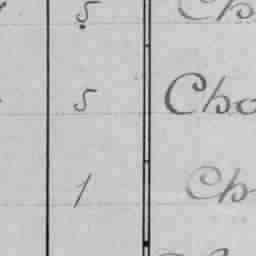 5 Ch
5 Cho
1 Ch